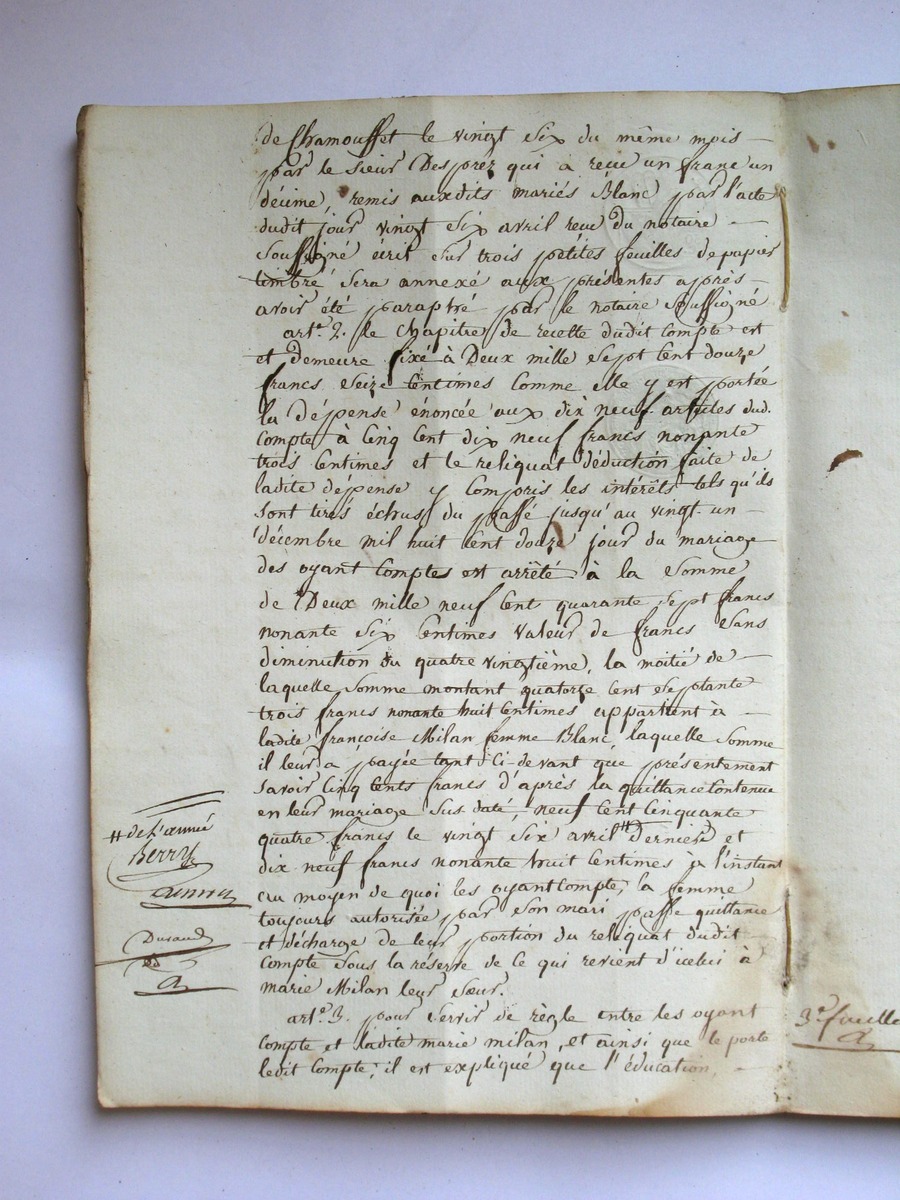 de Chamouffet le vingt six du même mois
par le sieur Desprez qui a recu un franc un
décime, remis auxdits mariés Blanc par l'acte
dudit jour vingt six avril recu du notaire
soussigné écrit sur trois petites feuilles de papier
timbré sera annexé aux présentes après
avoir été paraphré par le notaire soussigné
arte. 2. le chapitre de recette dudit compte est
et demeure fixé à Deux mille sept cent douze
francs seize centimes comme elle y est portée
la dépense énoncée aux dix neuf articles dud.
compte à cinq cent dix neuf francs nonante
trois centimes et le reliquat déduction faite de
ladite dépense y compris les intérêts tels qu'ils
sont tirés échus du passé jusqu'au vingt un
décembre mil huit cent douze jour du mariage
des oyant comptes est arrêté à la somme
de Deux mille neuf cent quarante sept francs
nonante six centimes valeur de francs sans
diminution du quatre vingtième, la moitié de
laquelle somme montant quatorze cent septante
trois francs nonante huit centimes appartient à
ladite françoise Milan femme Blanc, laquelle somme
il leur a payée tant ci-devant que présentement
savoir cinq cents francs d'après la quittance contenue
en leur mariage sus daté, neuf cent cinquante
quatre francs le vingt six avril # Dernier et
dix neuf francs nonante huit centimes à l'instant
au moyen de quoi les oyant compte, la femme
toujours autorisée par son mari passe quittance
et décharge de leur portion du reliquat dudit
compte sous la réserve de ce qui revient d'icelui à
marie Milan leur sœur.
arte. 3. pour servir de règle entre les oyant
compte et ladite marie milan, et ainsi que le porte
ledit compte, il est expliqué que l'éducation,
# de l'année
Berry
Durand
3e. feuille